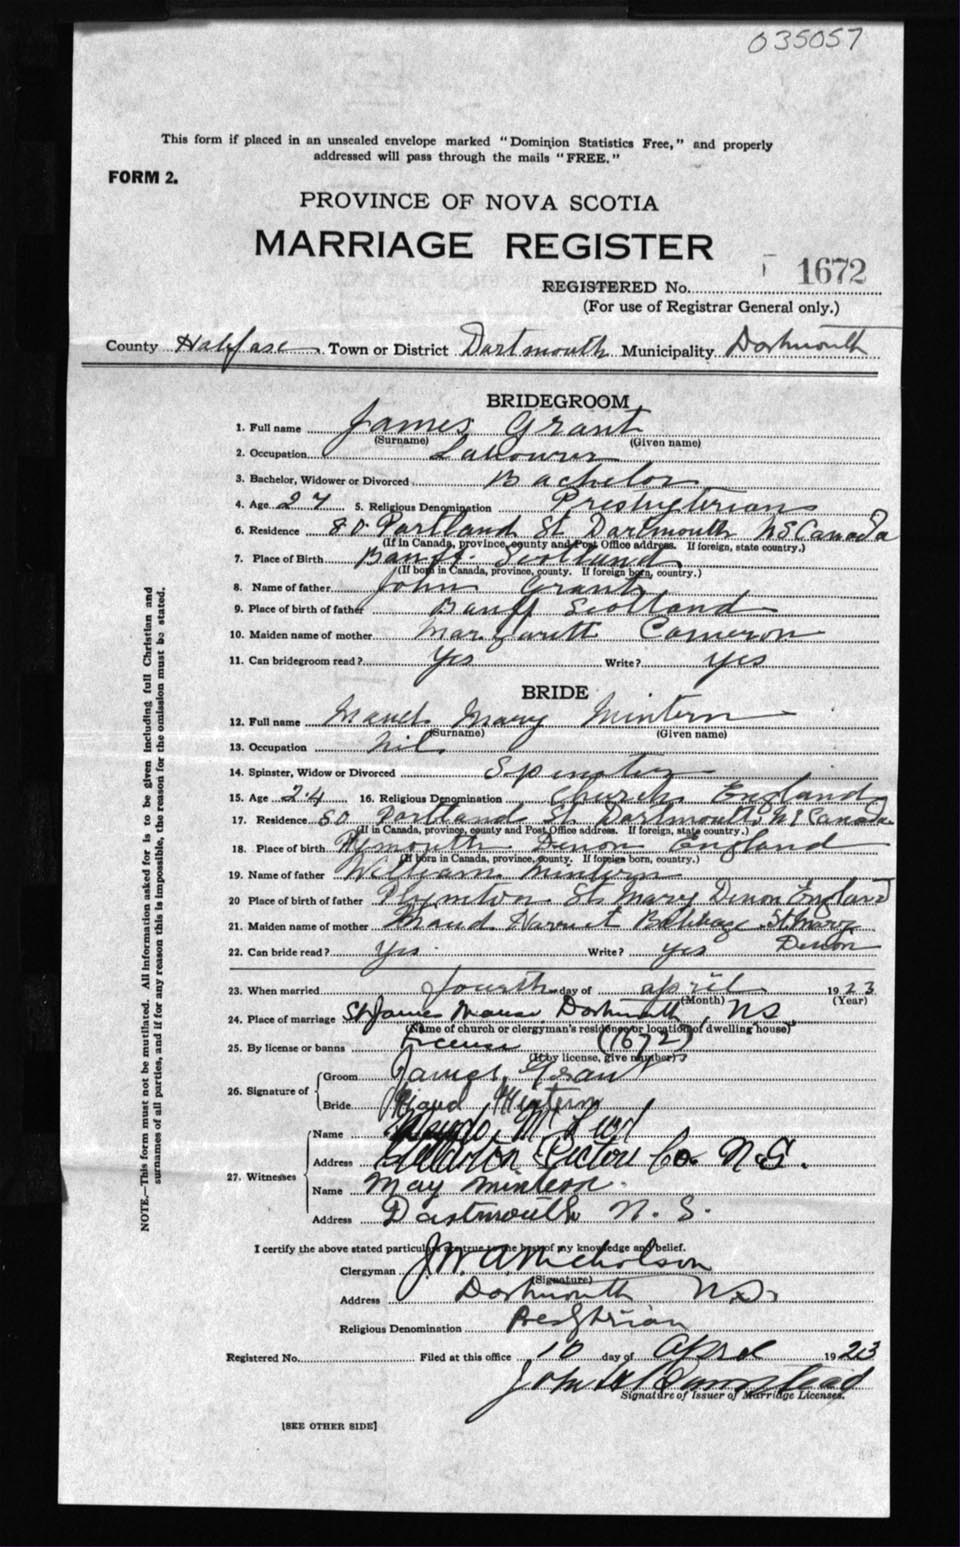 035057
This form if placed in an unsealed envelope marked "Dominion Statistics Free," and properly
addressed will pass through the mails "FREE."
FORM 2.
PROVINCE OF NOVA SCOTIA
MARRIAGE REGISTER
REGISTERED No. 1672
(For use of Registrar General only.)
County Halifax Town or District Dartmouth Municipality Dartmouth
BRIDEGROOM
1. Full name James Grant
(Surname) (Given name)
2. Occupation Labourer
3. Bachelor, Widower or Divorced Bachelor
4. Age 27 5. Religious Denomination Presbyterian
6. Residence 80 Portland St Dartmouth NS Canada
(If in Canada, province, county and Post Office address. If foreign, state country.)
7. Place of Birth Banff Scotland
(If born in Canada, province, county. If foreign born, country.)
8. Name of father John Grant
9. Place of birth of father Banff Scotland
10. Maiden name of mother Margarett Cameron
11. Can bridegroom read? Yes Write? yes
BRIDE
12. Full name Maud Mary Mintern
(Surname) (Given name)
13. Occupation Nil
14. Spinster, Widow or Divorced Spinster
15. Age 24 16. Religious Denomination Church England
17. Residence 80 Portland St Dartmouth NS Canada
(If in Canada, province, county and Post Office address. If foreign, state country.)
18. Place of birth Plymouth Devon England
(If born in Canada, province, county. If foreign born, country.)
19. Name of father William Mintern
20 Place of birth of father Plymton St Mary Devon England
21. Maiden name of mother Maud Harriet Babbage St Mary
Devon
22. Can bride read? Yes Write? yes
23. When married fourth day of april 1923
(Month) (Year)
24. Place of marriage St James Manse Dartmouth NS
(Name of church or clergyman's residence or location of dwelling house)
25. By license or banns License (1672)
(If by license, give number)
26. Signature of
Groom James Grant
Bride Maud Mintern
27. Witnesses
Name
Address Pictou Co. N.S.
Name May Mintern.
Address Dartmouth N. S.
I certify the above stated particulars are true to the best of my knowledge and belief.
Clergyman J. W. A. Nicholson
(Signature)
Address Dartmouth N.S.
Religious Denomination Presbyterian
Registered No. Filed at this office 10 day of April 1923
John
Signature of Issuer of Marriage Licenses.
[SEE OTHER SIDE]
NOTE.—This form must not be mutilated. All information asked for is to be given including full Christian and
surnames of all parties, and if for any reason this is impossible, the reason for the omission must be stated.